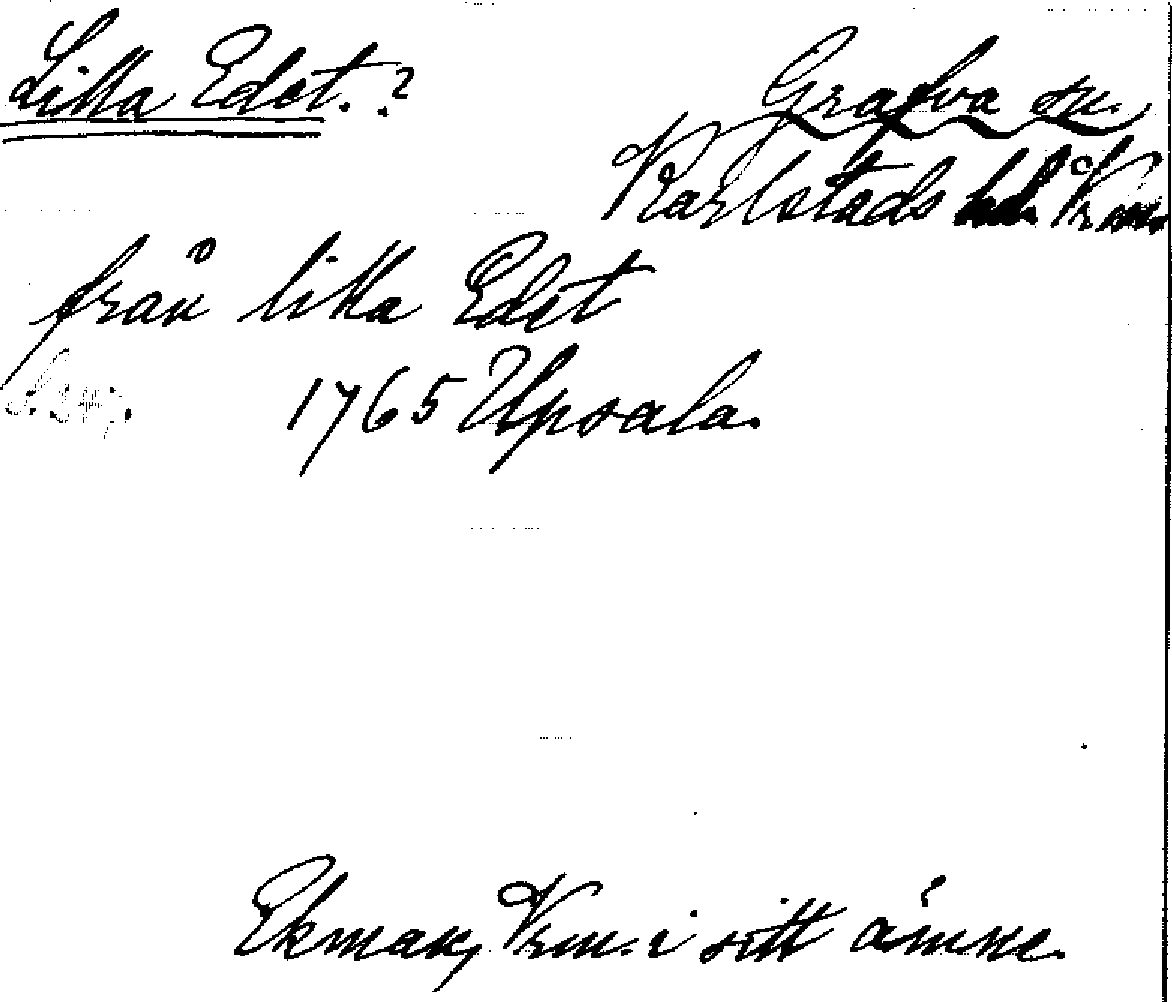 Lilla Edet.?
Grafva sn.
Karlstads hd. Vrm.
från lilla Edet
1765 Upsala.
Ekman, Vrm. i sitt ämne.